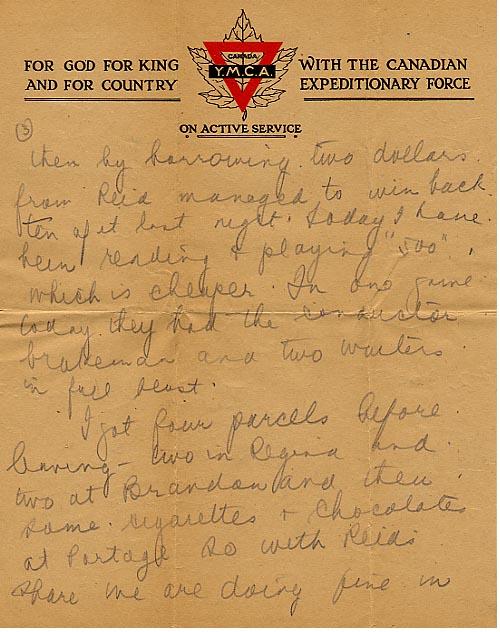 FOR GOD FOR KING
AND FOR COUNTRY
CANADA
Y.M.C.A.
WITH THE CANADIAN
EXPEDITIONARY FORCE
ON ACTIVE SERVICE
3
then by borrowing two dollars
from Reid managed to win back
ten of it last night. Today I have
been reading & playing "500",
which is cheaper. In one game
today they had the conductor
brakeman and two waiters
in full blast.
I got four parcels before
leaving - two in Regina and
two at Brandon and then
some cigarettes & chocolates
at Portage so with Reids
share we are doing fine in